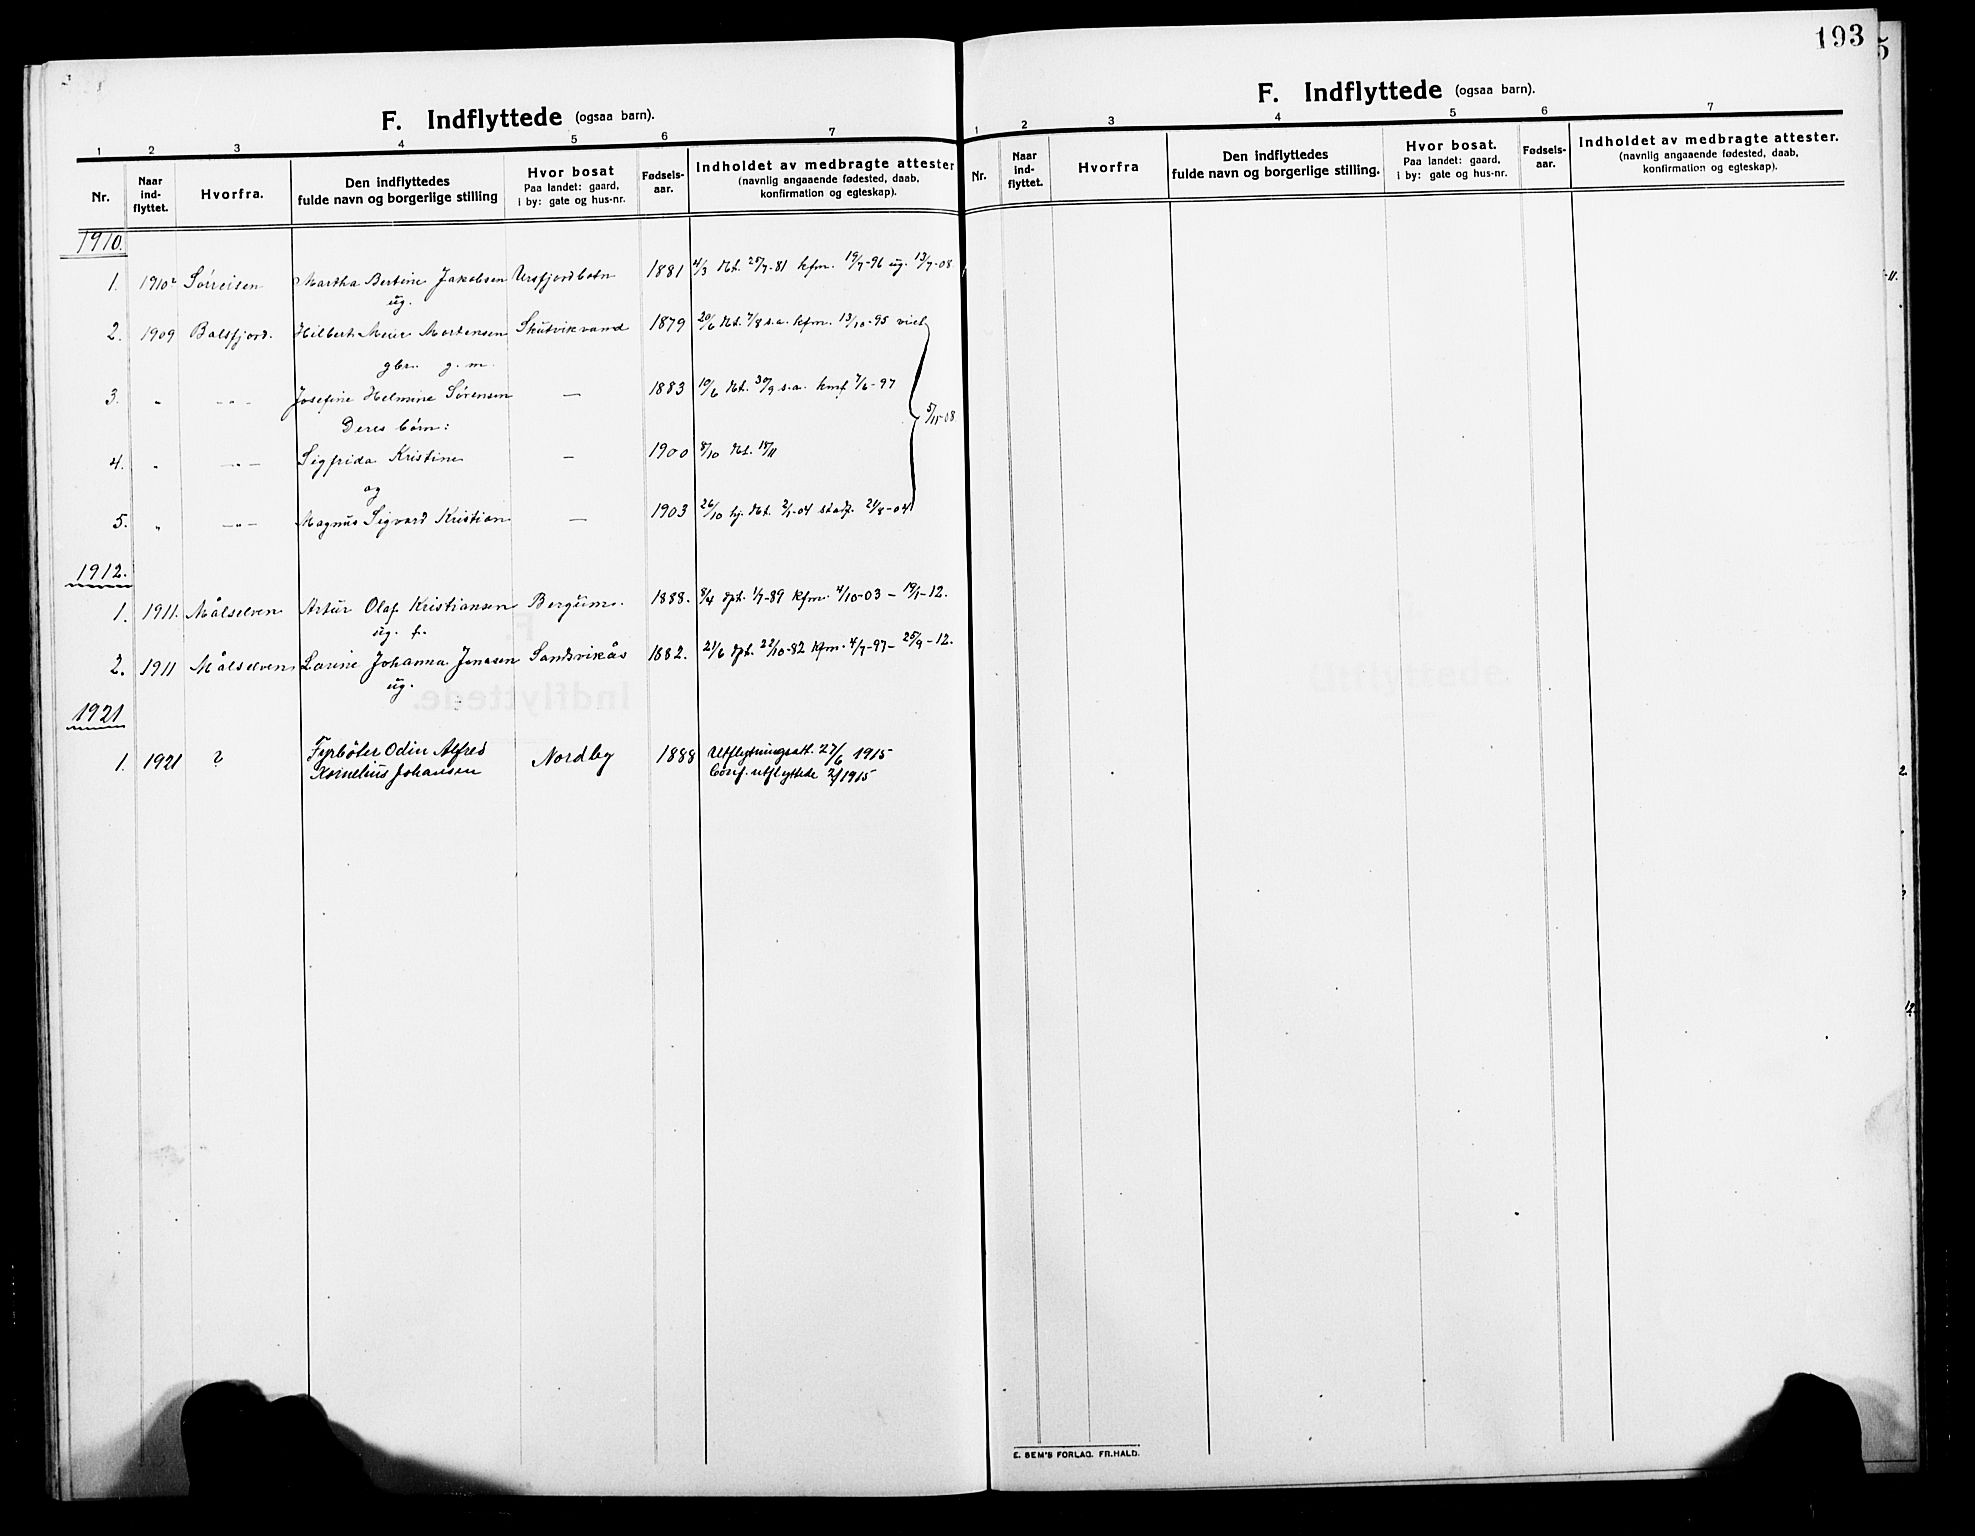 F. Indflyttede (ogsaa barn).
1 2 3 4 5 6 7
Nr. Naar ind-flyttet. Hvorfra. Den indflyttedes fulde navn og borgerlige stilling Hvor bosat Paa landet: gaard, i by: gate og hus-nr. Fødsels-aar. Indholdet av medbragte attester (navnlig angaaende fødested, daab, konfirmation og egteskap).
1910.
1. 1910 Sørreisen Martha Bertine Jakobsen Ursfjordbotn 1881 4/3 29/7-81 kfm. 19/7-96 ug. 13/7-08
ug.
2. 1909 Balsfjord. Hilbert Meier Mortensen Skutvikvand 1879 20/6 7/8 s.a. kfm. 13/10-95 viet
gbr. g. m.
3. " - " - Josefine Helmine Sørensen — 1883 19/6 30/9 s.a. kmf 7/6-97
5/11-08
Deres børn:
4. " - " - Sigfrida Kristine — 1900 8/10 18/11
og
5. " - " - Magnus Sigvard Kristian — 1903 26/10 hj. 2/1-04 stadf. 21/8-04
1912.
1. 1911. Målselven Artur Olaf Kristiansen Bergum. 1888. 8/4 dpt. 1/7-89 kfm. 4/10-03 - 19/1-12.
ug. f.
2. 1911 Målselven Larine Johanna Jenasen Sandsvikås 1882. 21/6 dpt. 22/10-82 kfm. 4/7-97- 25/9-12.
ug.
1921
1. 1921 ? Fyrbøter Odin Alfred Nordby 1888 Utflytningsatt. 27/6 1915
Kornelius Johansen Conf. utflyttede 2/1915
193
5
F. Indflyttede (ogsaa barn).
1 2 3 4 5 6 7
Nr. Naar ind-flyttet. Hvorfra Den indflyttedes fulde navn og borgerlige stilling. Hvor bosat. Paa landet: gaard, i by: gate og hus-nr. Fødsels-aar. Indholdet av medbragte attester. (navnlig angaaende fødested, daab, konfirmation og egteskap).
E. SEM'S FORLAG. FR.HALD.